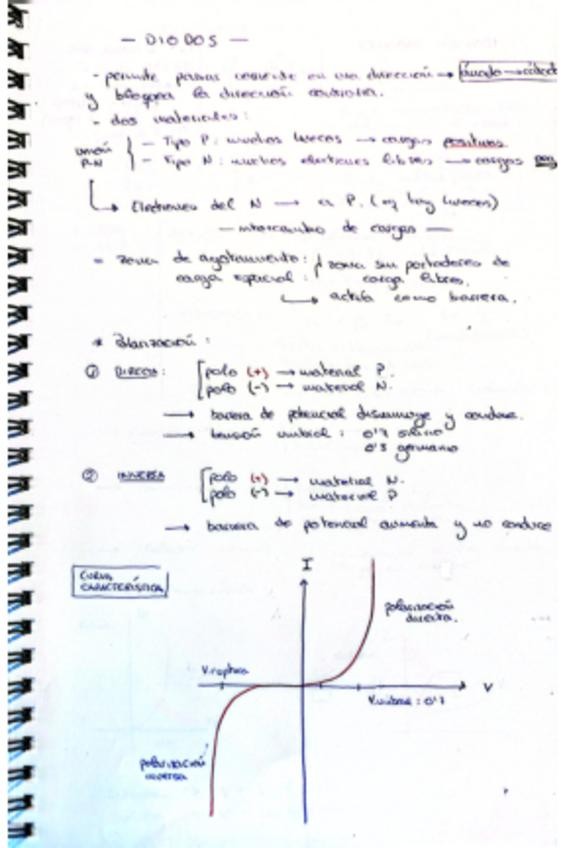 — DIODOS —
- permite pasar corriente en una dirección → ánodo → cátodo
y bloquea la dirección contraria.
- dos materiales:
unión P-N
- Tipo P: muchos huecos → cargas positivas
- Tipo N: muchos electrones libres → cargas neg
↳ Electrones del N → a P. (hay huecos)
— intercambio de cargas —
- zona de agotamiento: zona sin portadores de
carga espacial: carga libres.
↳ actúa como barrera.
* Polarización:
① DIRECTA: polo (+) → material P.
polo (-) → material N.
→ barrera de potencial disminuye y conduce.
→ tensión umbral: 0'7 silicio
0'3 germanio
② INVERSA polo (+) → material N.
polo (-) → material P
→ barrera de potencial aumenta y no conduce
CURVA
CARACTERÍSTICA
I
polarización
directa.
V.ruptura
V
V.umbral: 0'7
polarización
inversa